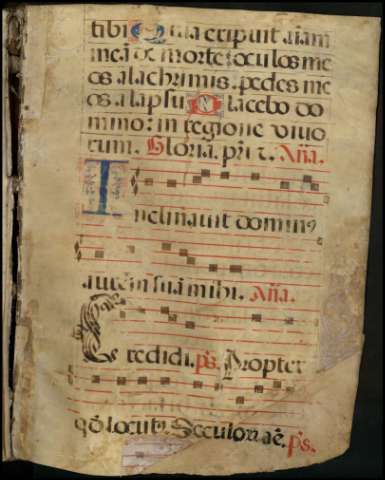 tibi Quia eripuit aīam
meā de morte: oculos me
os a lachrimis. pedes me
os a lapsu Placebo do
mino: in regione vivo
rum. Gloria. pr̄i z. Añā.
Inclinavit dominꝰ
aurem suā mihi. Añā.
Credidi. p̄s. Propter
qđ locutꝰ. Seculorū aē. p̄s.